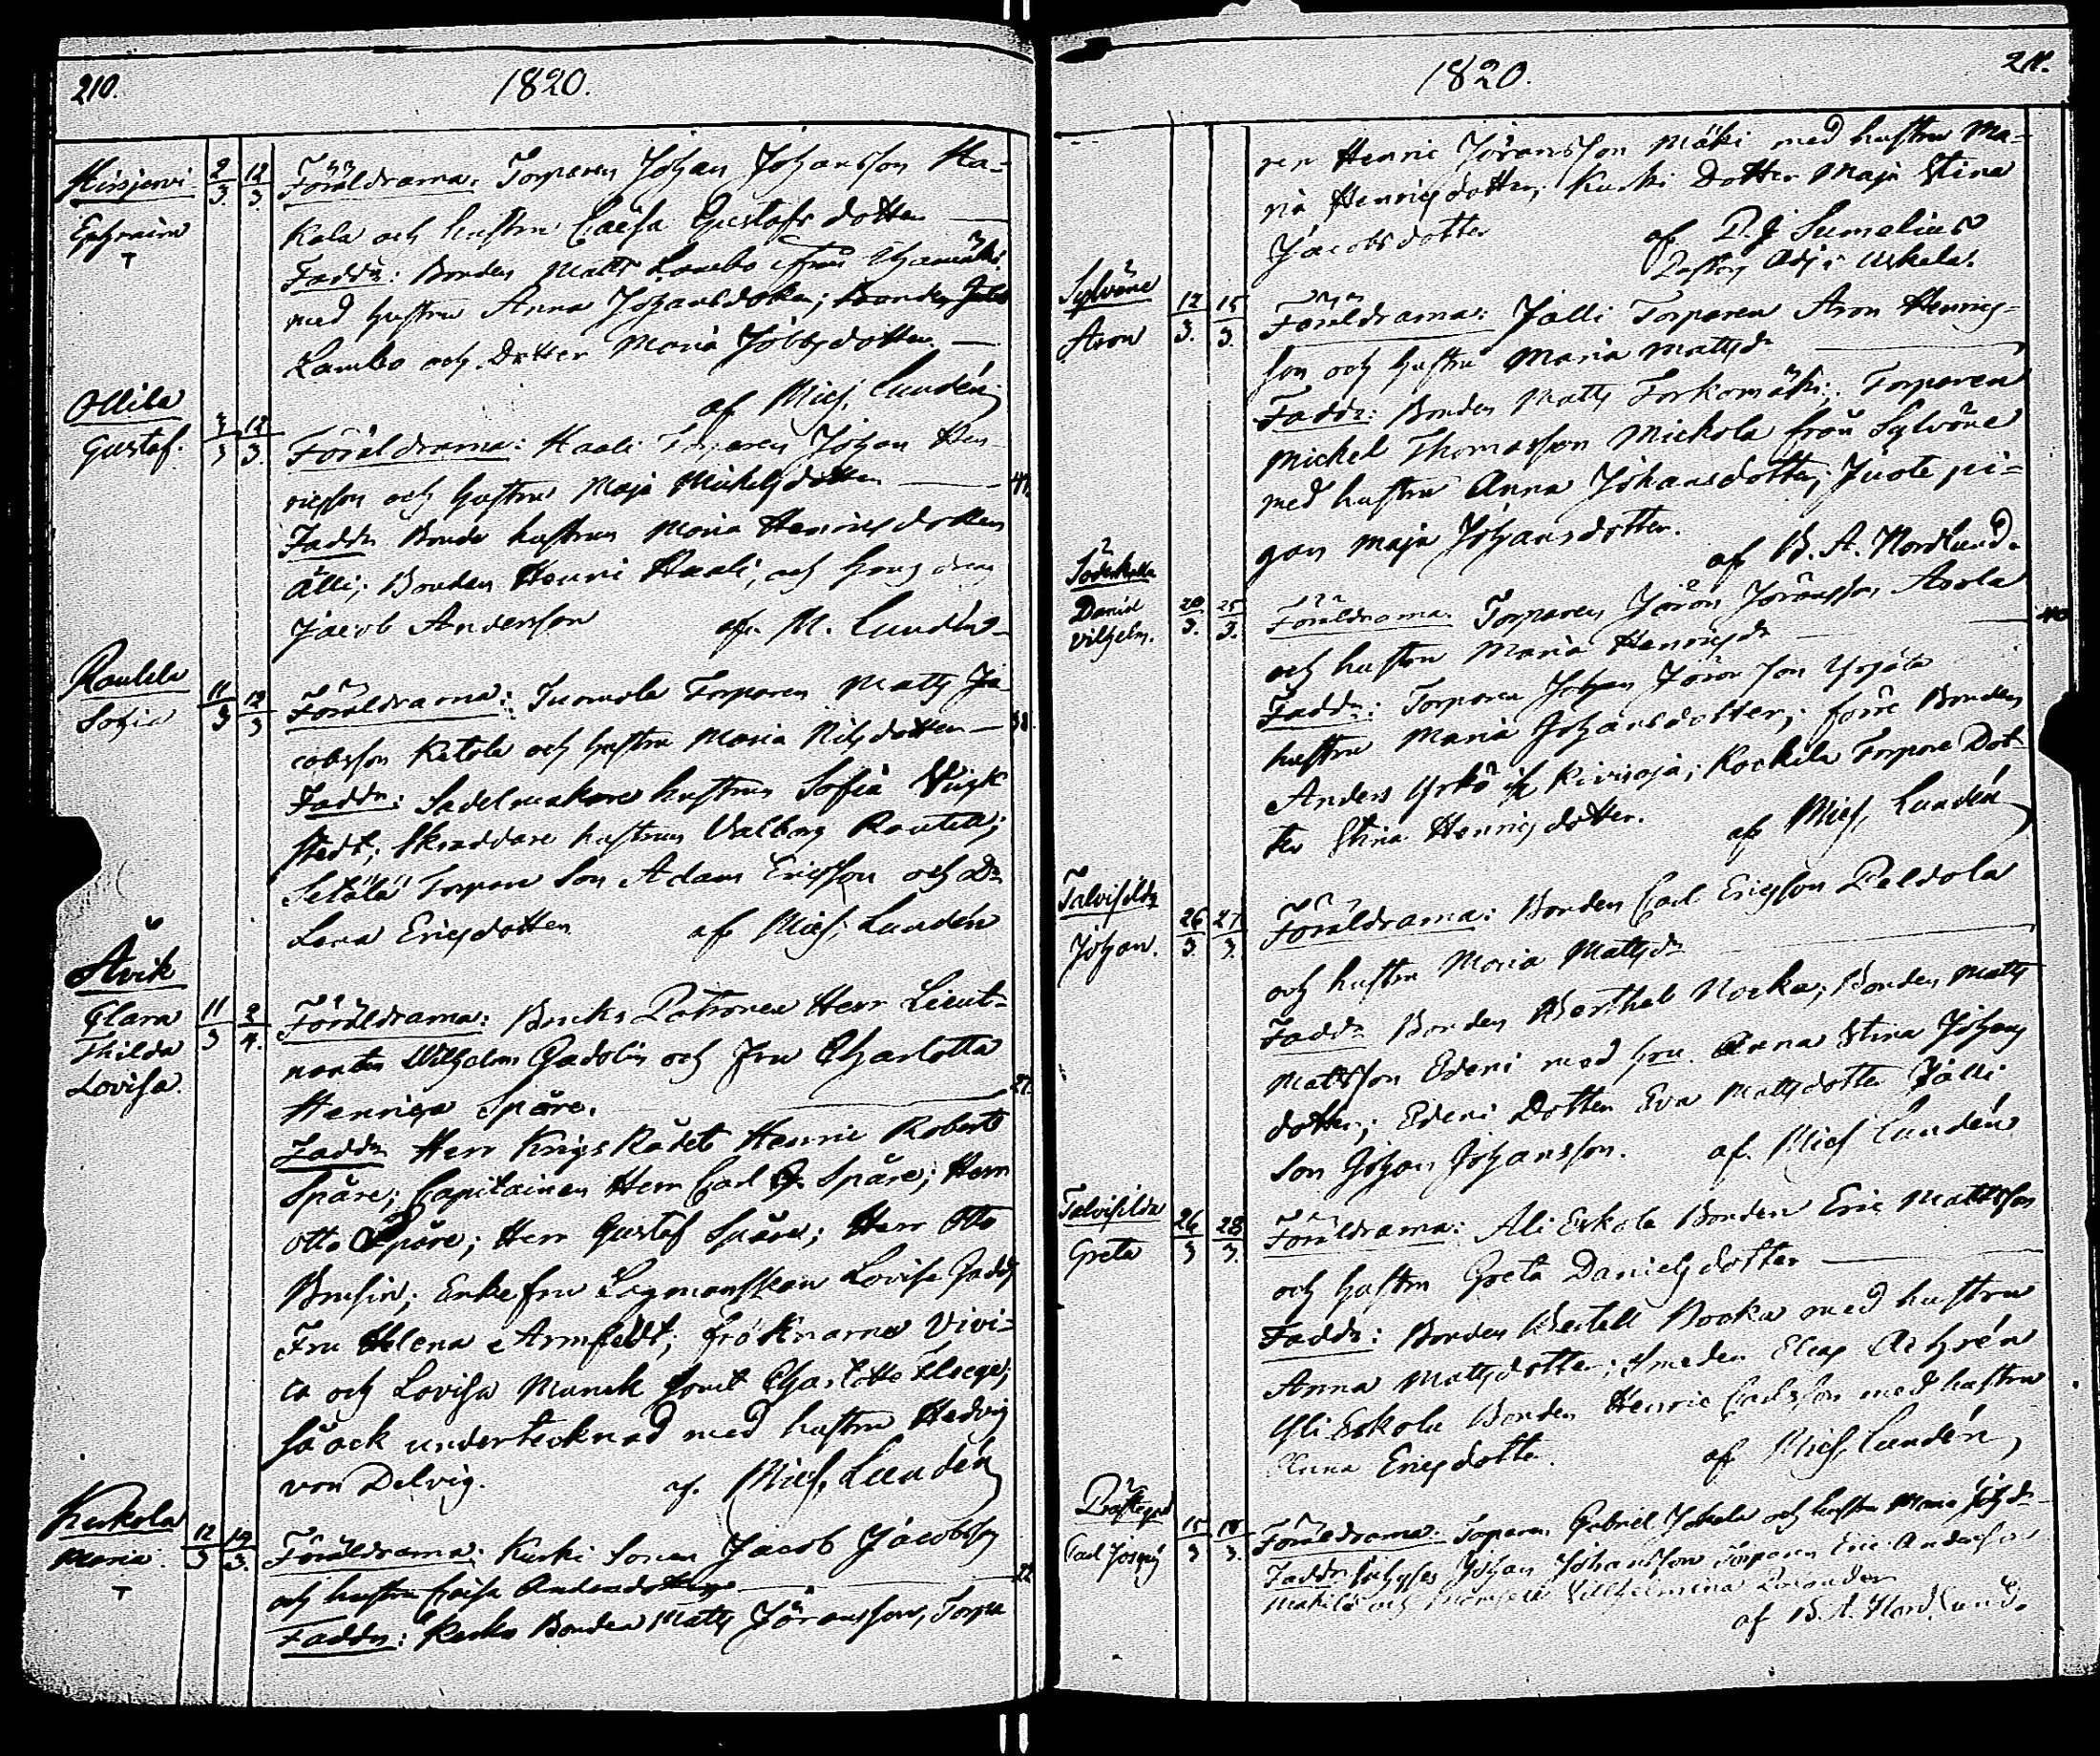 210.
1820.
Hirsjervi
Ephraim
2/3 12/3
Föräldrarna: Torparen Johan Johansson Ha-
kala och hustru Caisa Gustafsdotter
Faddr: Bonden Matts Lambo ifrån
med hustru Anna Johansdotter; Bonden
Lambo och Dotter Maria
af Mich. Lundén
Ollila
Gustaf.
12/3
Föräldrarna: Haali Torparen Johan Hen-
ricsson och hustru Maja Michelsdotter
Faddr Bonde hustrun Maria Henricsdotter
Älli; Bonden Henric Haali, och
Jacob Andersson af M. Lundén
Rautela
Sophia
11/3 12/3
Föräldrarna: Tuomola Torparen Matts Ja-
cobsson Ketola och hustru Maria Nilsdotter
Faddr: Sadelmakare hustrun Sofia
stedt; Skraddare hustrun Valborg Rautell;
Setälä Torpare Son Adam Ericsson och Dr
Lena Ericsdotter af Mich. Lundén
Åvik
Clara
Thilda
Lovisa.
11/3 2/4
Föräldrarna: Bruks Patronen Herr Lieut-
nanten Wilhelm Gadolin och Fru Charlotta
Henrica Spåre. 27.
Faddr Herr KrigsRådet Henric Robert
Spåre; Capitainen Herr Carl G. Spåre; Herr
Otto Spåre; Herr Gustaf Spåre; Herr Otto
Brusin; Enkefru Lagmanskan Lovisa Gadd;
Fru Helena Armfeldt; fröknarna Vivi-
ca och Lovisa Munck samt Charlotte Fleege;
så ock undertecknad med hustru Hedvig
von Delvig. af. Mich. Lundén
Kurkola
Maria.
12/3 19/3
Föräldrarna: Kurki Sonen Jacob Jacobsson
och hustru Caisa Andersdotter 22
Faddr: Kurki Bonden Matts Jöransson, Torpa
1820.
211.
ren Henric Jöransson Mäki med hustru Ma-
ria Henricsdotter; Kurki Dotter Maja Stina
Jacobsdotter af P.J Sumelius
Pastors Adj: i Uskela.
Sylvöne
Aron
12/3. 15/3.
Föräldrarna: Jälli Torparen Aron Henrics-
son och hustru Maria Mattsdr
Faddr: Bonden Matts Torkomäki; Torparen
Michel Thomasson Mickola från Sylvöne
med hustru Anna Johansdotter; Juote pi-
gan Maja Johansdotter.
af B. A. Nordlund.
Daniel
Vilhelm.
20/3. 25/3.
Föräldrarna: Torparen Jöran Jöransson Arola
och hustru Maria Henricsdr 40
Faddr: Torparen Johan Jöransson
hustru Maria Johansdotter; förre Bonden
Anders Yrkö if: Kivisoja; Rockila Torpare Dot-
ter Stina Henricsdotter. af Mich. Lundén
Talvisilda
Johan.
26/3. 27/3.
Föräldrarna: Bonden Carl Ericsson Peldola
och hustru Maria Mattsdr
Faddr Bonden Berthel Nocka; Bonden Matts
Mattsson Edeni med hru. Anna Stina Johans
dotter; Edeni Dotter Eva Mattsdotter Jälli
Son Johan Johansson. af. Mich Lundén
Talvisilda
Greta
26/3 28/3.
Föräldrarna: Ali Eskola Bonden Eric Mattsson
och hustru Greta Danielsdotter
Faddr: Bonden Bertell Nocka med hustru
Anna Mattsdotter; Smeden Elias Achrén
Yli Eskola Bonden Henric Carlsson med hustru
Anna Ericsdotter. af Mich. Lundén
Prästgrd
Carl
15/3 18/3.
Föräldrarna: Torparen Gabriel Jokela och hustru Maria Johsdr
Johan Johansson Torparen Eric Andersson
Mäkilä och Mamsell Villhelmina
af B. A. Nordlund.